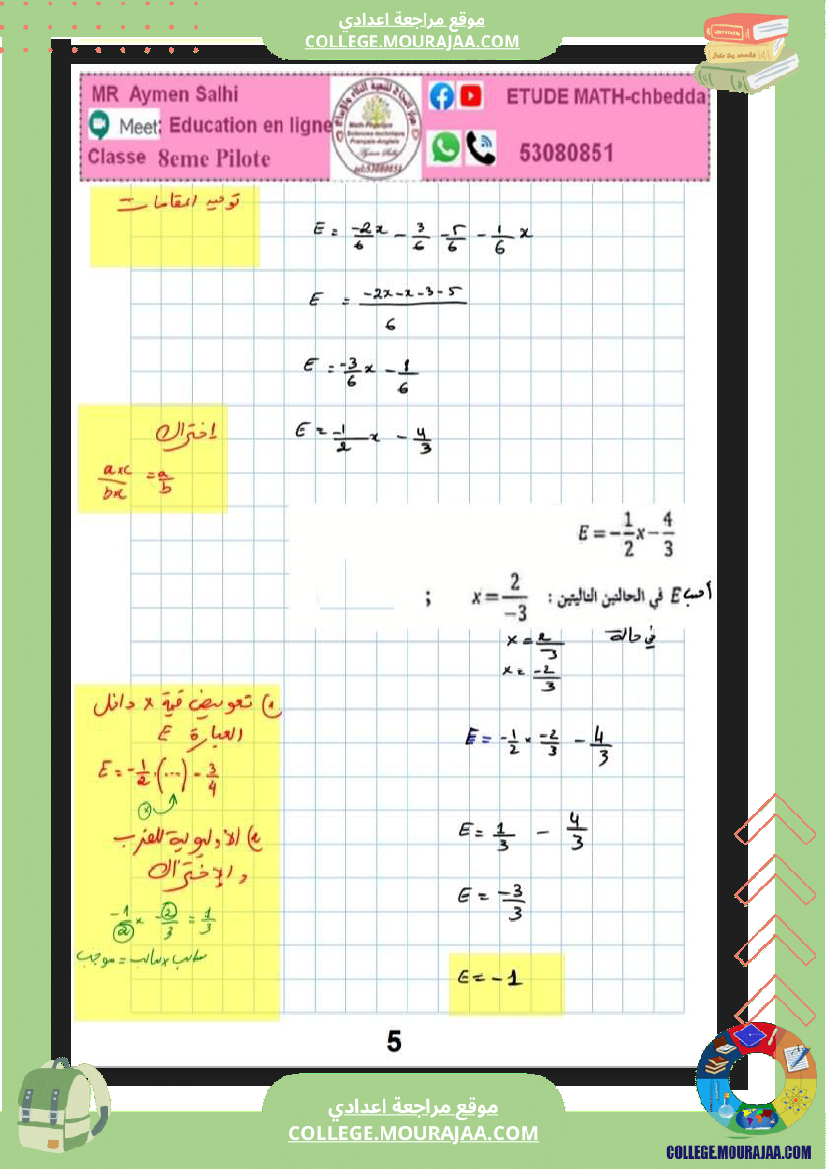 موقع مراجعة اعدادي
COLLEGE.MOURAJAA.COM
MR Aymen Salhi
Meet: Education en ligne
Classe 8eme Pilote
ETUDE MATH-chbedda
53080851
توحيد المقامات
E = -2x/6 - 3/6 - 5/6 - 1/6 x
E = (-2x-x-3-5)/6
E = -3/6 x - 1/6
اختزال
E = -1/2 x - 4/3
axc/bxc = a/b
E = -1/2 x - 4/3
أحسب E في الحالتين التاليتين : x = 2/-3 ;
في حالة x = 2/-3
x = -2/3
1) تعويض قيمة x داخل
العبارة E
E = -1/2 · (...) - 3/4
(x)
E = -1/2 × -2/3 - 4/3
2) الأولوية للضرب
و الإختزال
E = 1/3 - 4/3
-1/2 × -2/3 = 1/3
سالب x سالب = موجب
E = -3/3
E = -1
5
موقع مراجعة اعدادي
COLLEGE.MOURAJAA.COM
COLLEGE.MOURAJAA.COM